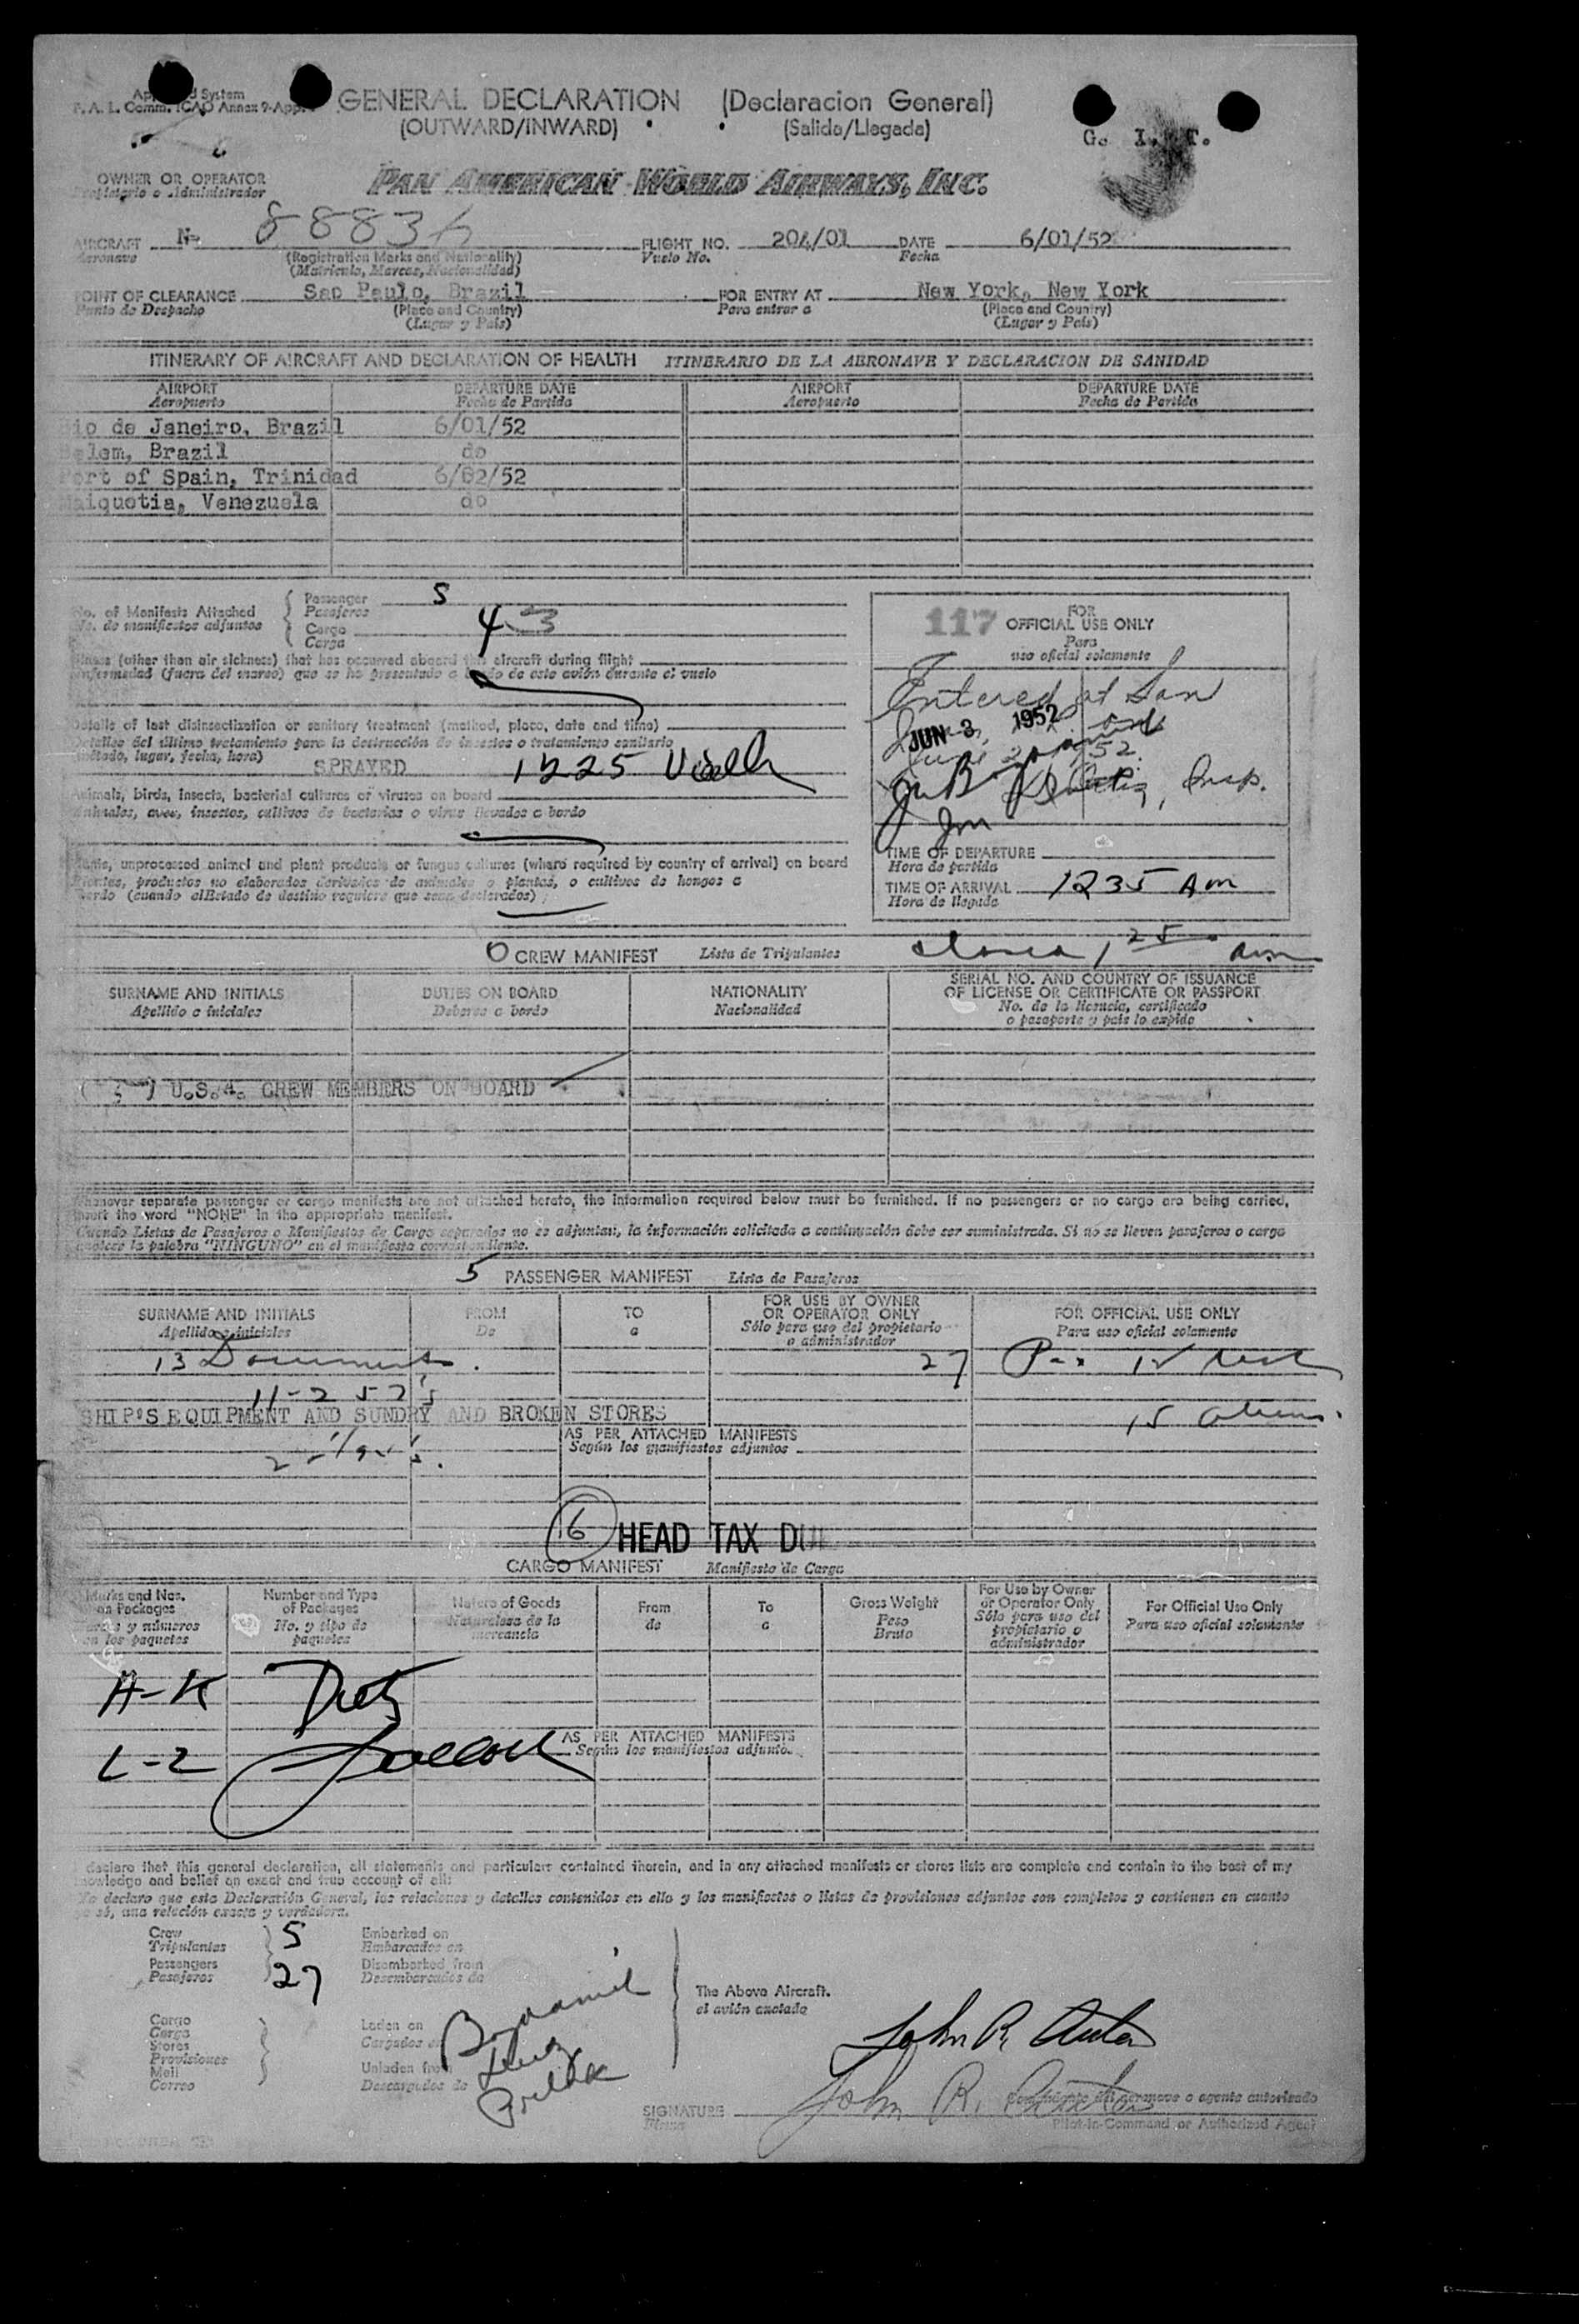 System
F. A. L. Comm. ICAO Annex 9-App.
GENERAL DECLARATION (Declaracion General)
(OUTWARD/INWARD) (Salida/Llegada)
G. I. T.
OWNER OR OPERATOR
Propietario o Administrador
PAN AMERICAN WORLD AIRWAYS, INC.
AIRCRAFT N- 88836 FLIGHT NO. 204/01 DATE 6/01/52
Aeronave (Registration Marks and Nationality) Vuelo No. Fecha
(Matricula, Marcas, Nacionalidad)
POINT OF CLEARANCE Sao Paulo, Brazil FOR ENTRY AT New York, New York
Punto de Despacho (Place and Country) Para entrar a (Place and Country)
(Lugar y Pais) (Lugar y Pais)
ITINERARY OF AIRCRAFT AND DECLARATION OF HEALTH ITINERARIO DE LA AERONAVE Y DECLARACION DE SANIDAD
AIRPORT DEPARTURE DATE AIRPORT DEPARTURE DATE
Aeropuerto Fecha de Partida Aeropuerto Fecha de Partida
Rio de Janeiro, Brazil 6/01/52
Belem, Brazil do
Port of Spain, Trinidad 6/02/52
Maiquotia, Venezuela do
No. of Manifests Attached
No. de manifiestos adjuntos
Passenger 5
Pasajeros
Cargo 4 3
Carga
Illness (other than air sickness) that has occurred aboard this aircraft during flight
Enfermedad (fuera del mareo) que se ha presentado a bordo de este avión durante el vuelo
Details of last disinsectization or sanitary treatment (method, place, date and time)
Detalles del último tratamiento para la destrucción de insectos o tratamiento sanitario
(método, lugar, fecha, hora)
SPRAYED 1225
Animals, birds, insects, bacterial cultures or viruses on board
Animales, aves, insectos, cultivos de bacterias o virus llevados a bordo
Plants, unprocessed animal and plant products or fungus cultures (where required by country of arrival) on board
Plantas, productos no elaborados derivados de animales o plantas, o cultivos de hongos a
bordo (cuando el Estado de destino requiere que sean declarados)
117 FOR
OFFICIAL USE ONLY
Para
uso oficial solamente
Entered at San
JUN 3, 1952
Insp.
TIME OF DEPARTURE
Hora de partida
TIME OF ARRIVAL 1235 Am
Hora de llegada
0 CREW MANIFEST Lista de Tripulantes
SURNAME AND INITIALS DUTIES ON BOARD NATIONALITY SERIAL NO. AND COUNTRY OF ISSUANCE
OF LICENSE OR CERTIFICATE OR PASSPORT
Apellido e iniciales Deberes a bordo Nacionalidad No. de la licencia, certificado
o pasaporte y pais lo expide
( 5 ) U.S.A. CREW MEMBERS ON BOARD
Whenever separate passenger or cargo manifests are not attached hereto, the information required below must be furnished. If no passengers or no cargo are being carried,
insert the word "NONE" in the appropriate manifest.
Cuando Listas de Pasajeros o Manifiestos de Cargo separados no se adjuntan, la información solicitada a continuación debe ser suministrada. Si no se lleven pasajeros o carga
anotese la palabra "NINGUNO" en el manifiesto correspondiente.
5 PASSENGER MANIFEST Lista de Pasajeros
SURNAME AND INITIALS FROM TO FOR USE BY OWNER
OR OPERATOR ONLY FOR OFFICIAL USE ONLY
Apellido e iniciales De a Sólo para uso del propietario
o administrador Para uso oficial solamente
13 Documents 27
11-257's
SHIP'S EQUIPMENT AND SUNDRY AND BROKEN STORES
15 Aliens.
AS PER ATTACHED MANIFESTS
Según los manifiestos adjuntos
6 HEAD TAX DUE
CARGO MANIFEST Manifiesto de Carga
Marks and Nos.
on Packages
Marcas y números
en los paquetes
Number and Type
of Packages
No. y tipo de
paquetes
Nature of Goods
Naturaleza de la
mercancia
From
de
To
a
Gross Weight
Peso
Bruto
For Use by Owner
or Operator Only
Sólo para uso del
propietario o
administrador
For Official Use Only
Para uso oficial solamente
A-K
L-Z
AS PER ATTACHED MANIFESTS
Según los manifiestos adjunto.
I declare that this general declaration, all statements and particulars contained therein, and in any attached manifests or stores lists are complete and contain to the best of my
knowledge and belief an exact and true account of all:
Yo declaro que esta Declaración General, las relaciones y detalles contenidos en ella y los manifiestos o listas de provisiones adjuntos son completos y contienen en cuanto
yo sé, una relación exacta y verdadera.
Crew 5 Embarked on
Tripulantes Embarcados en
Passengers 27 Disembarked from
Pasajeros Desembarcados de
The Above Aircraft.
el avión anotado
Cargo
Carga
Stores
Provisiones
Mail
Correo
Laden on
Cargados en
Unladen from
Descargados de
John R.
John R.
Comandante del aeronave o agente autorizado
SIGNATURE
Firma
Pilot-in-Command or Authorized Agent